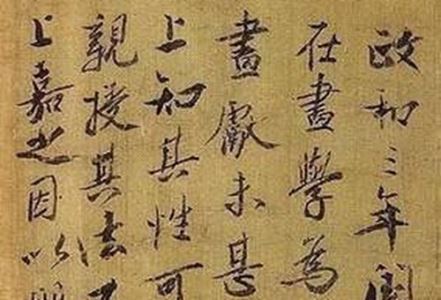 政和三年閏
在畫學為
畫獻未甚
上知其性可
親授其法
上嘉之因以